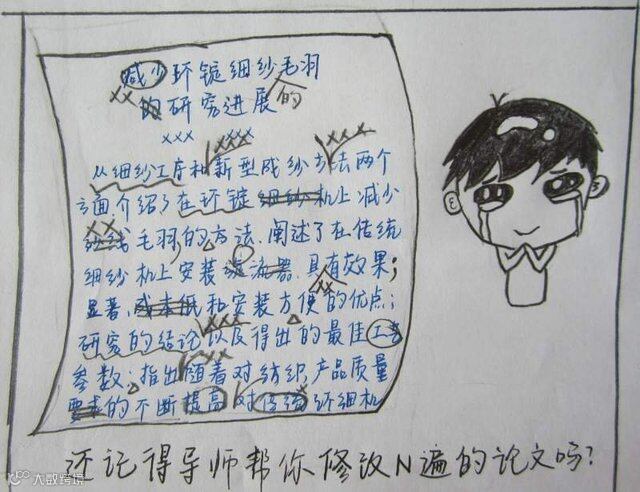 减少环锭细纱毛羽
的研究进展的
×× ××× ××××
×× ××× ×
从细纱工序和新型成纱方法两个
方面介绍了在环锭细纱机上减少
纱线毛羽的方法,阐述了在传统
细纱机上安装 具有效果;
显著、成本低和安装方便的优点;
研究的结论以及得出的最佳工艺
参数;指出随着对纺织产品质量
要求的不断提高对传统环细机
还记得导师帮你修改N遍的论文吗?
大数跨境